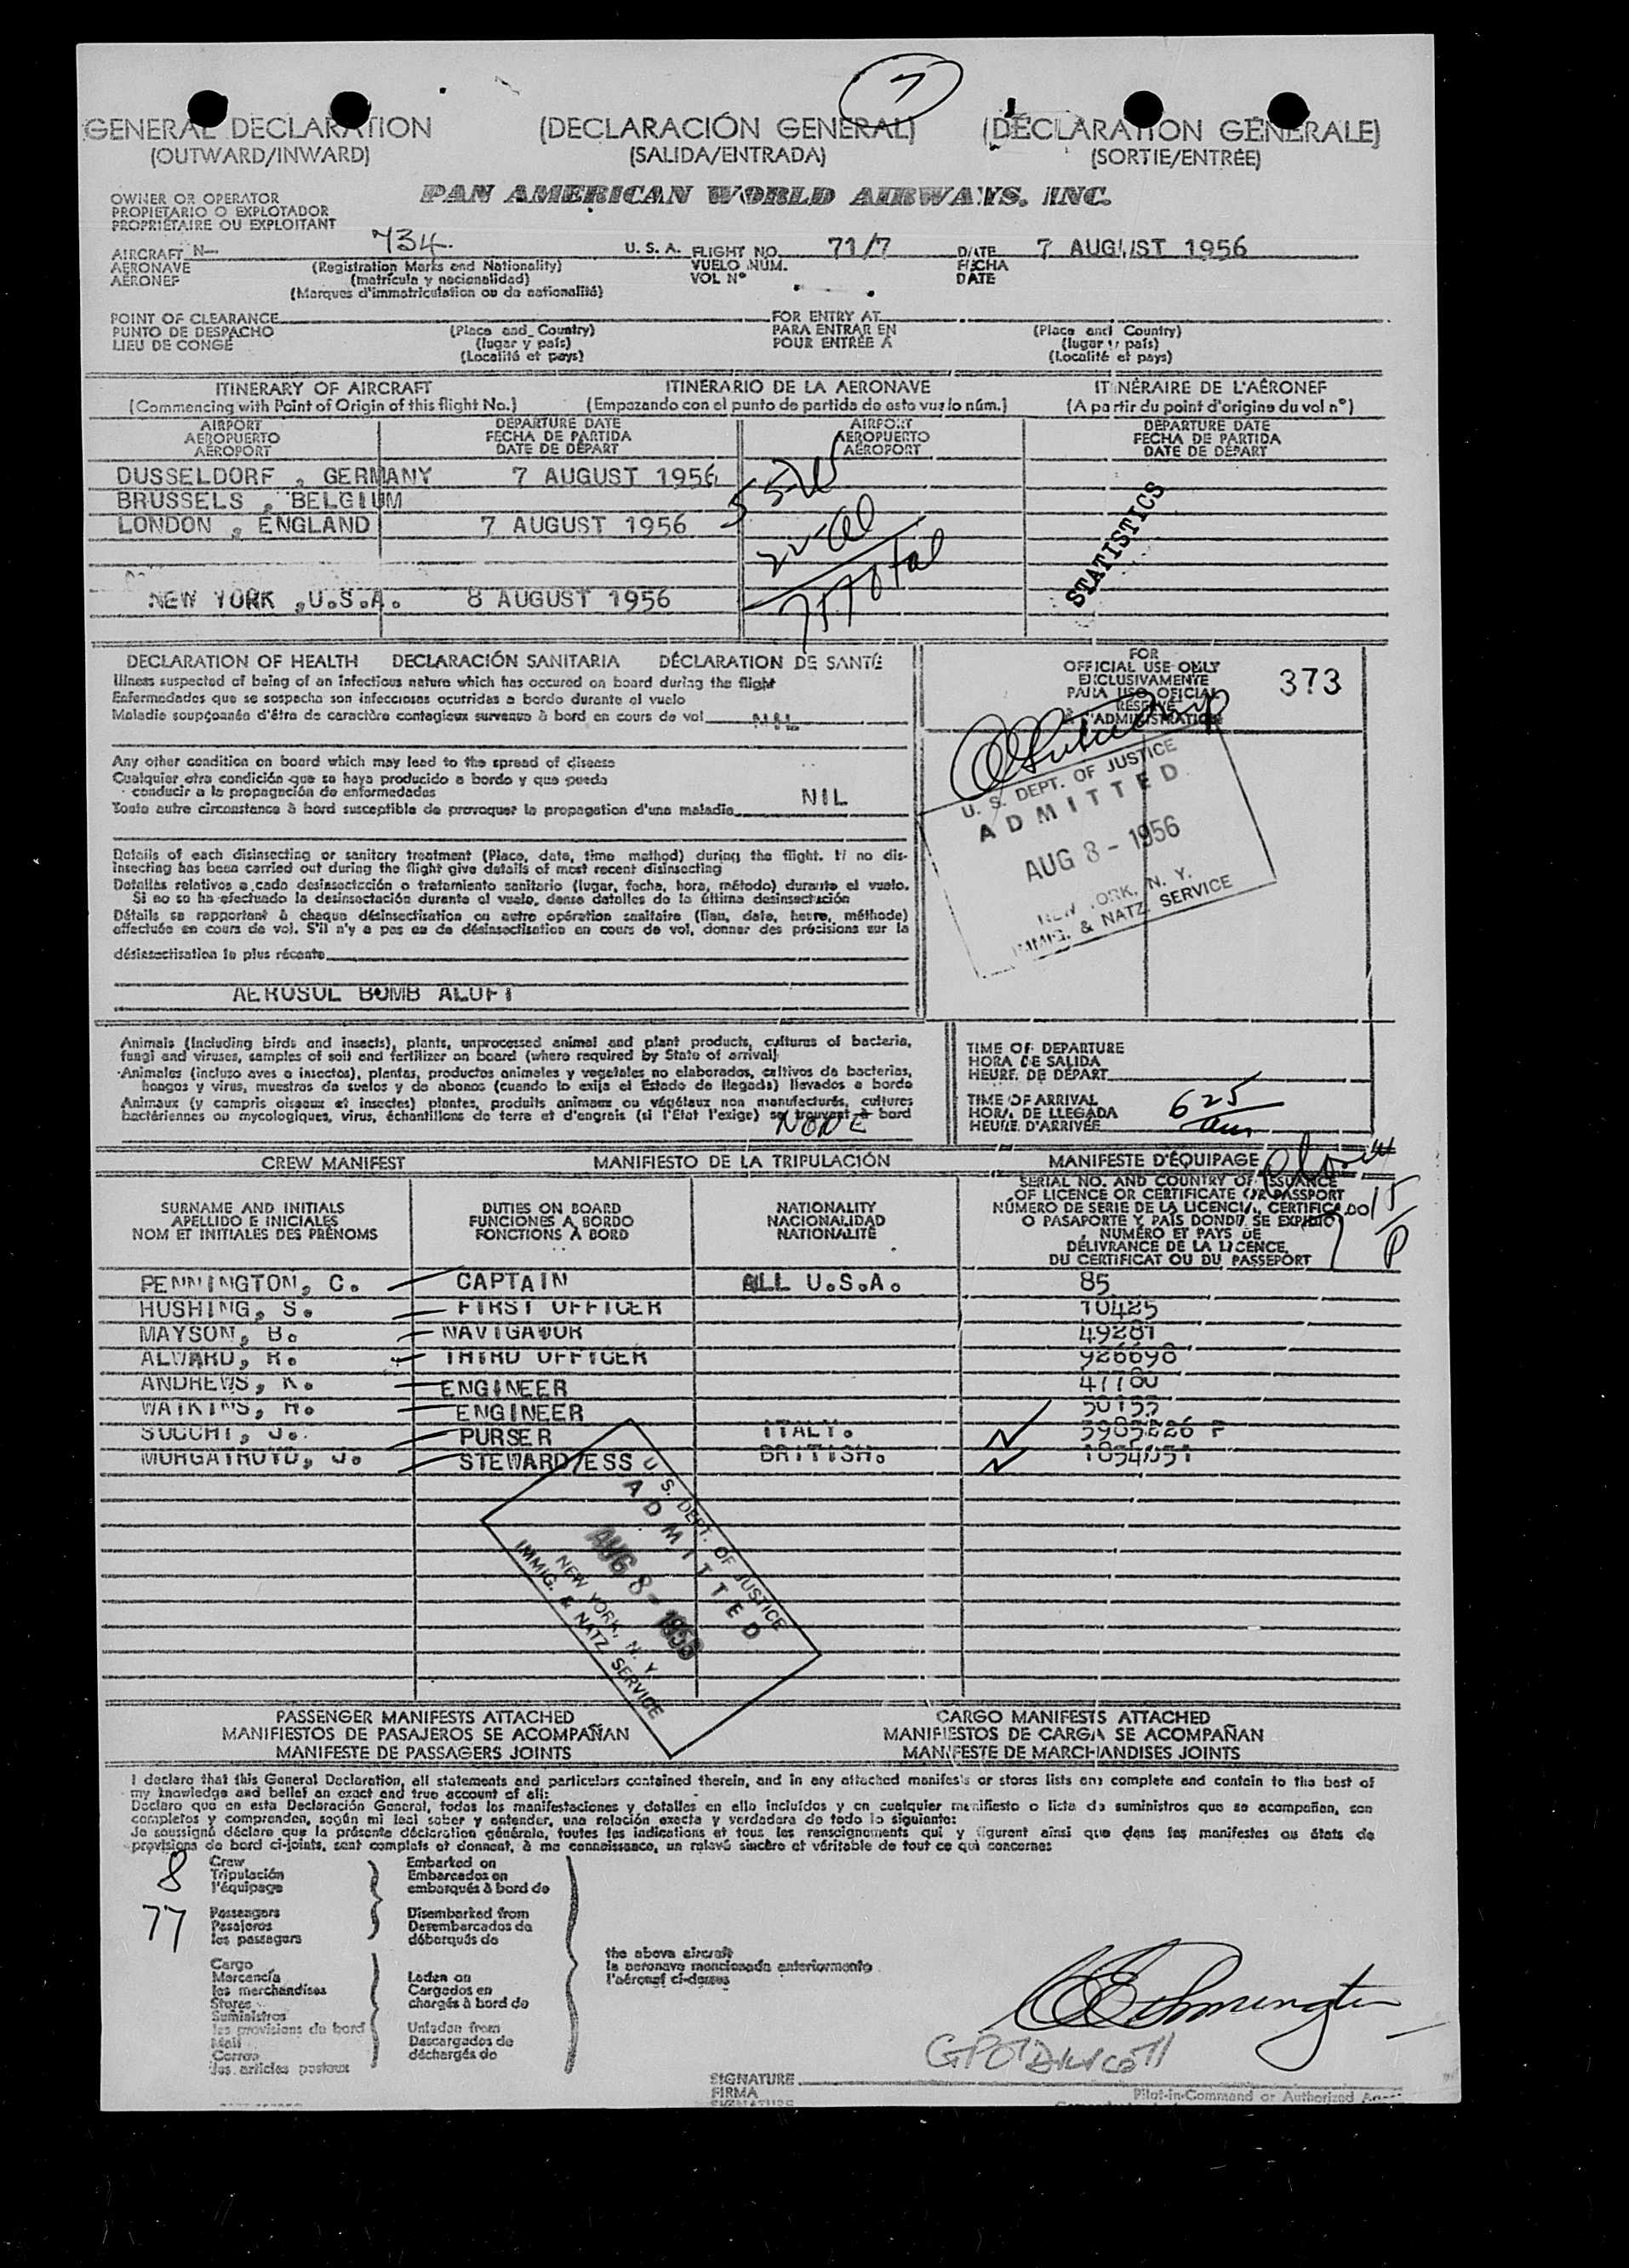 7
GENERAL DECLARATION (DECLARACIÓN GENERAL) (DÉCLARATION GÉNÉRALE)
(OUTWARD/INWARD) (SALIDA/ENTRADA) (SORTIE/ENTRÉE)
OWNER OR OPERATOR
PROPIETARIO O EXPLOTADOR
PROPRIÉTAIRE OU EXPLOITANT
PAN AMERICAN WORLD AIRWAYS, INC.
AIRCRAFT N- 734 U. S. A. FLIGHT NO. 71/7 DATE 7 AUGUST 1956
AERONAVE (Registration Marks and Nationality) VUELO NÚM. FECHA
AÉRONEF (matrícula y nacionalidad) VOL Nº DATE
(Marques d'immatriculation ou de nationalité)
POINT OF CLEARANCE FOR ENTRY AT
PUNTO DE DESPACHO (Place and Country) PARA ENTRAR EN (Place and Country)
LIEU DE CONGÉ (lugar y país) POUR ENTRÉE À (lugar y país)
(Localité et pays) (Localité et pays)
ITINERARY OF AIRCRAFT ITINERARIO DE LA AERONAVE ITINÉRAIRE DE L'AÉRONEF
(Commencing with Point of Origin of this flight No.) (Empezando con el punto de partida de esto vuelo núm.) (A partir du point d'origine du vol nº)
AIRPORT DEPARTURE DATE AIRPORT DEPARTURE DATE
AEROPUERTO FECHA DE PARTIDA AEROPUERTO FECHA DE PARTIDA
AÉROPORT DATE DE DÉPART AÉROPORT DATE DE DÉPART
DUSSELDORF , GERMANY 7 AUGUST 1956
BRUSSELS , BELGIUM
LONDON , ENGLAND 7 AUGUST 1956
NEW YORK ,U.S.A. 8 AUGUST 1956
STATISTICS
DECLARATION OF HEALTH DECLARACIÓN SANITARIA DÉCLARATION DE SANTÉ
Illness suspected of being of an infectious nature which has occured on board during the flight
Enfermedades que se sospecha son infecciosas ocurridas a bordo durante el vuelo
Maladie soupçonnée d'être de caractère contagieux survenue à bord en cours de vol NIL
Any other condition on board which may lead to the spread of disease
Cualquier otra condición que se haya producido a bordo y que pueda
conducir a la propagación de enfermedades
Toute autre circonstance à bord susceptible de provoquer la propagation d'une maladie NIL
Details of each disinsecting or sanitary treatment (Place, date, time method) during the flight. If no dis-
insecting has been carried out during the flight give details of most recent disinsecting
Detalles relativos a cada desinsectación o tratamiento sanitario (lugar, fecha, hora, método) durante el vuelo.
Si no se ha efectuado la desinsectación durante el vuelo, dense detalles de la última desinsectación
Détails se rapportant à chaque désinsectisation ou autre opération sanitaire (lieu, date, heure, méthode)
effectuée en cours de vol. S'il n'y a pas eu de désinsectisation en cours de vol, donner des précisions sur la
désinsectisation la plus récente
AEROSOL BOMB ALOFT
FOR
OFFICIAL USE ONLY
EXCLUSIVAMENTE
PARA USO OFICIAL
RÉSERVÉ
À L'ADMINISTRATION
373
U. S. DEPT. OF JUSTICE
ADMITTED
AUG 8 - 1956
NEW YORK, N. Y.
IMMIG. & NATZ. SERVICE
Animals (Including birds and insects), plants, unprocessed animal and plant products, cultures of bacteria,
fungi and viruses, samples of soil and fertilizer on board (where required by State of arrival)
Animales (incluso aves e insectos), plantas, productos animales y vegetales no elaborados, cultivos de bacterias,
hongos y virus, muestras de suelos y de abonos (cuando lo exija el Estado de llegada) llevados a bordo
Animaux (y compris oiseaux et insectes) plantes, produits animaux ou végétaux non manufacturés, cultures
bactériennes ou mycologiques, virus, échantillons de terre et d'engrais (si l'Etat l'exige) se trouvant à bord
NONE
TIME OF DEPARTURE
HORA DE SALIDA
HEURE DE DÉPART
TIME OF ARRIVAL
HORA DE LLEGADA
HEURE D'ARRIVÉE
625 am
CREW MANIFEST MANIFIESTO DE LA TRIPULACIÓN MANIFESTE D'ÉQUIPAGE
SURNAME AND INITIALS
APELLIDO E INICIALES
NOM ET INITIALES DES PRÉNOMS
DUTIES ON BOARD
FUNCIONES A BORDO
FONCTIONS À BORD
NATIONALITY
NACIONALIDAD
NATIONALITÉ
SERIAL NO. AND COUNTRY OF ISSUANCE
OF LICENCE OR CERTIFICATE OR PASSPORT
NÚMERO DE SERIE DE LA LICENCIA, CERTIFICADO
O PASAPORTE Y PAÍS DONDE SE EXPIDIÓ
NUMÉRO ET PAYS DE
DÉLIVRANCE DE LA LICENCE,
DU CERTIFICAT OU DU PASSEPORT
PENNINGTON, C. CAPTAIN ALL U.S.A. 85
HUSHING, S. FIRST OFFICER 10425
MAYSON, B. NAVIGATOR 49281
ALWARD, R. THIRD OFFICER 926698
ANDREWS, K. ENGINEER 47780
WATKINS, H. ENGINEER 50155
SUCCHI, J. PURSER ITALY.
MURGATROYD, J. STEWARD/ESS BRITISH.
U. S. DEPT. OF JUSTICE
ADMITTED
AUG 8 - 1956
NEW YORK, N. Y.
IMMIG. & NATZ. SERVICE
PASSENGER MANIFESTS ATTACHED CARGO MANIFESTS ATTACHED
MANIFIESTOS DE PASAJEROS SE ACOMPAÑAN MANIFIESTOS DE CARGA SE ACOMPAÑAN
MANIFESTE DE PASSAGERS JOINTS MANIFESTE DE MARCHANDISES JOINTS
I declare that this General Declaration, all statements and particulars contained therein, and in any attached manifests or stores lists are complete and contain to the best of
my knowledge and belief an exact and true account of all:
Declaro que en esta Declaración General, todas las manifestaciones y detalles en ella incluídos y en cualquier manifiesto o lista de suministros que se acompañan, son
completos y comprenden, según mi leal saber y entender, una relación exacta y verdadera de todo lo siguiente:
Je soussigné déclare que la présente déclaration générale, toutes les indications et tous les renseignements qui y figurent ainsi que dans les manifestes ou états de
provisions de bord ci-joints, sont complets et donnent, à ma connaissance, un relevé sincère et véritable de tout ce qui concerne:
8 Crew
Tripulación
l'équipage
77 Passengers
Pasajeros
les passagers
Cargo
Mercancía
les marchandises
Stores
Suministros
les provisions du bord
Mail
Correo
les articles postaux
Embarked on
Embarcados en
embarqués à bord de
Disembarked from
Desembarcados de
débarqués de
Laden on
Cargados en
chargés à bord de
Unladen from
Descargados de
déchargés de
the above aircraft
la aeronave mencionada anteriormente
l'aéronef ci-dessus
SIGNATURE
FIRMA
SIGNATURE
Pilot-in-Command or Authorized